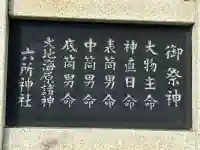 御祭神
大物主命
神直日命
表筒男命
中筒男命
底筒男命
大地海原諸神
六所神社